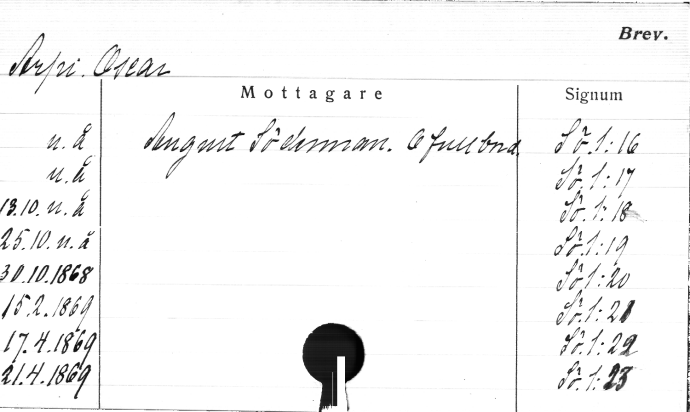 Brev.
Arpi. Oscar
Mottagare Signum
u. å August Söderman. Ofullbord. Sö. 1:16
u. å Sö. 1:17
13.10. u. å Sö. 1:18
25.10. u. å Sö. 1:19
30.10.1868 Sö 1:20
15.2.1869 Sö. 1:21
17.4.1869 Sö. 1:22
21.4.1869 Sö. 1:23